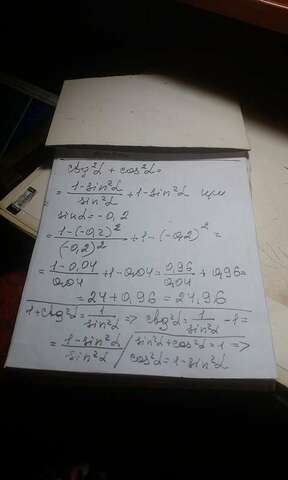 ctg²α + cos²α =
= (1-sin²α)/(sin²α) + 1-sin²α при
sinα = -0,2
= (1-(-0,2)²)/((-0,2)²) + 1-(-0,2)² =
= (1-0,04)/(0,04) + 1-0,04 = 0,96/0,04 + 0,96=
= 24+0,96 = 24,96
1+ctg²α = 1/(sin²α) => ctg²α = 1/(sin²α) -1=
= (1-sin²α)/(sin²α) / sin²α+cos²α=1 =>
cos²α=1-sin²α